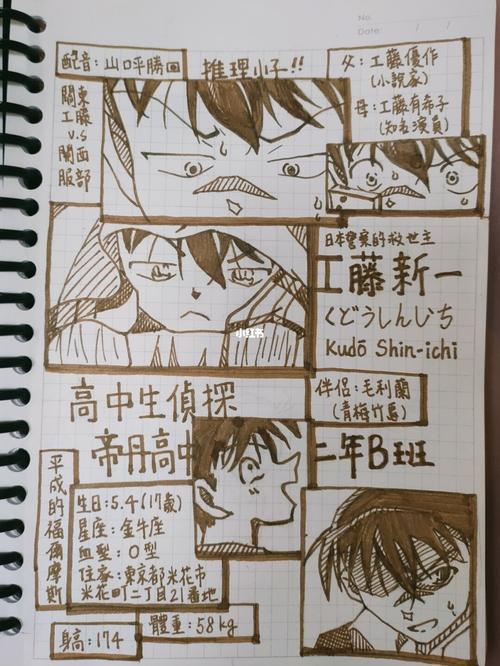 No.
Date:
配音:山口呼勝回
推理小子!!
父:工藤優作
(小說家)
母:工藤有希子
(知名演員)
關東
工藤
v.s
關西
服部
日本警察的救世主
工藤新一
くどうしんいち
Kudō Shin-ichi
小红书
伴侶:毛利蘭
(青梅竹馬)
高中生偵探
帝丹高中
二年B班
平成的福爾摩斯
生日:5.4(17歲)
星座:金牛座
血型:O型
住家:東京都米花市
米花町二丁目21番地
身高:174
體重:58kg